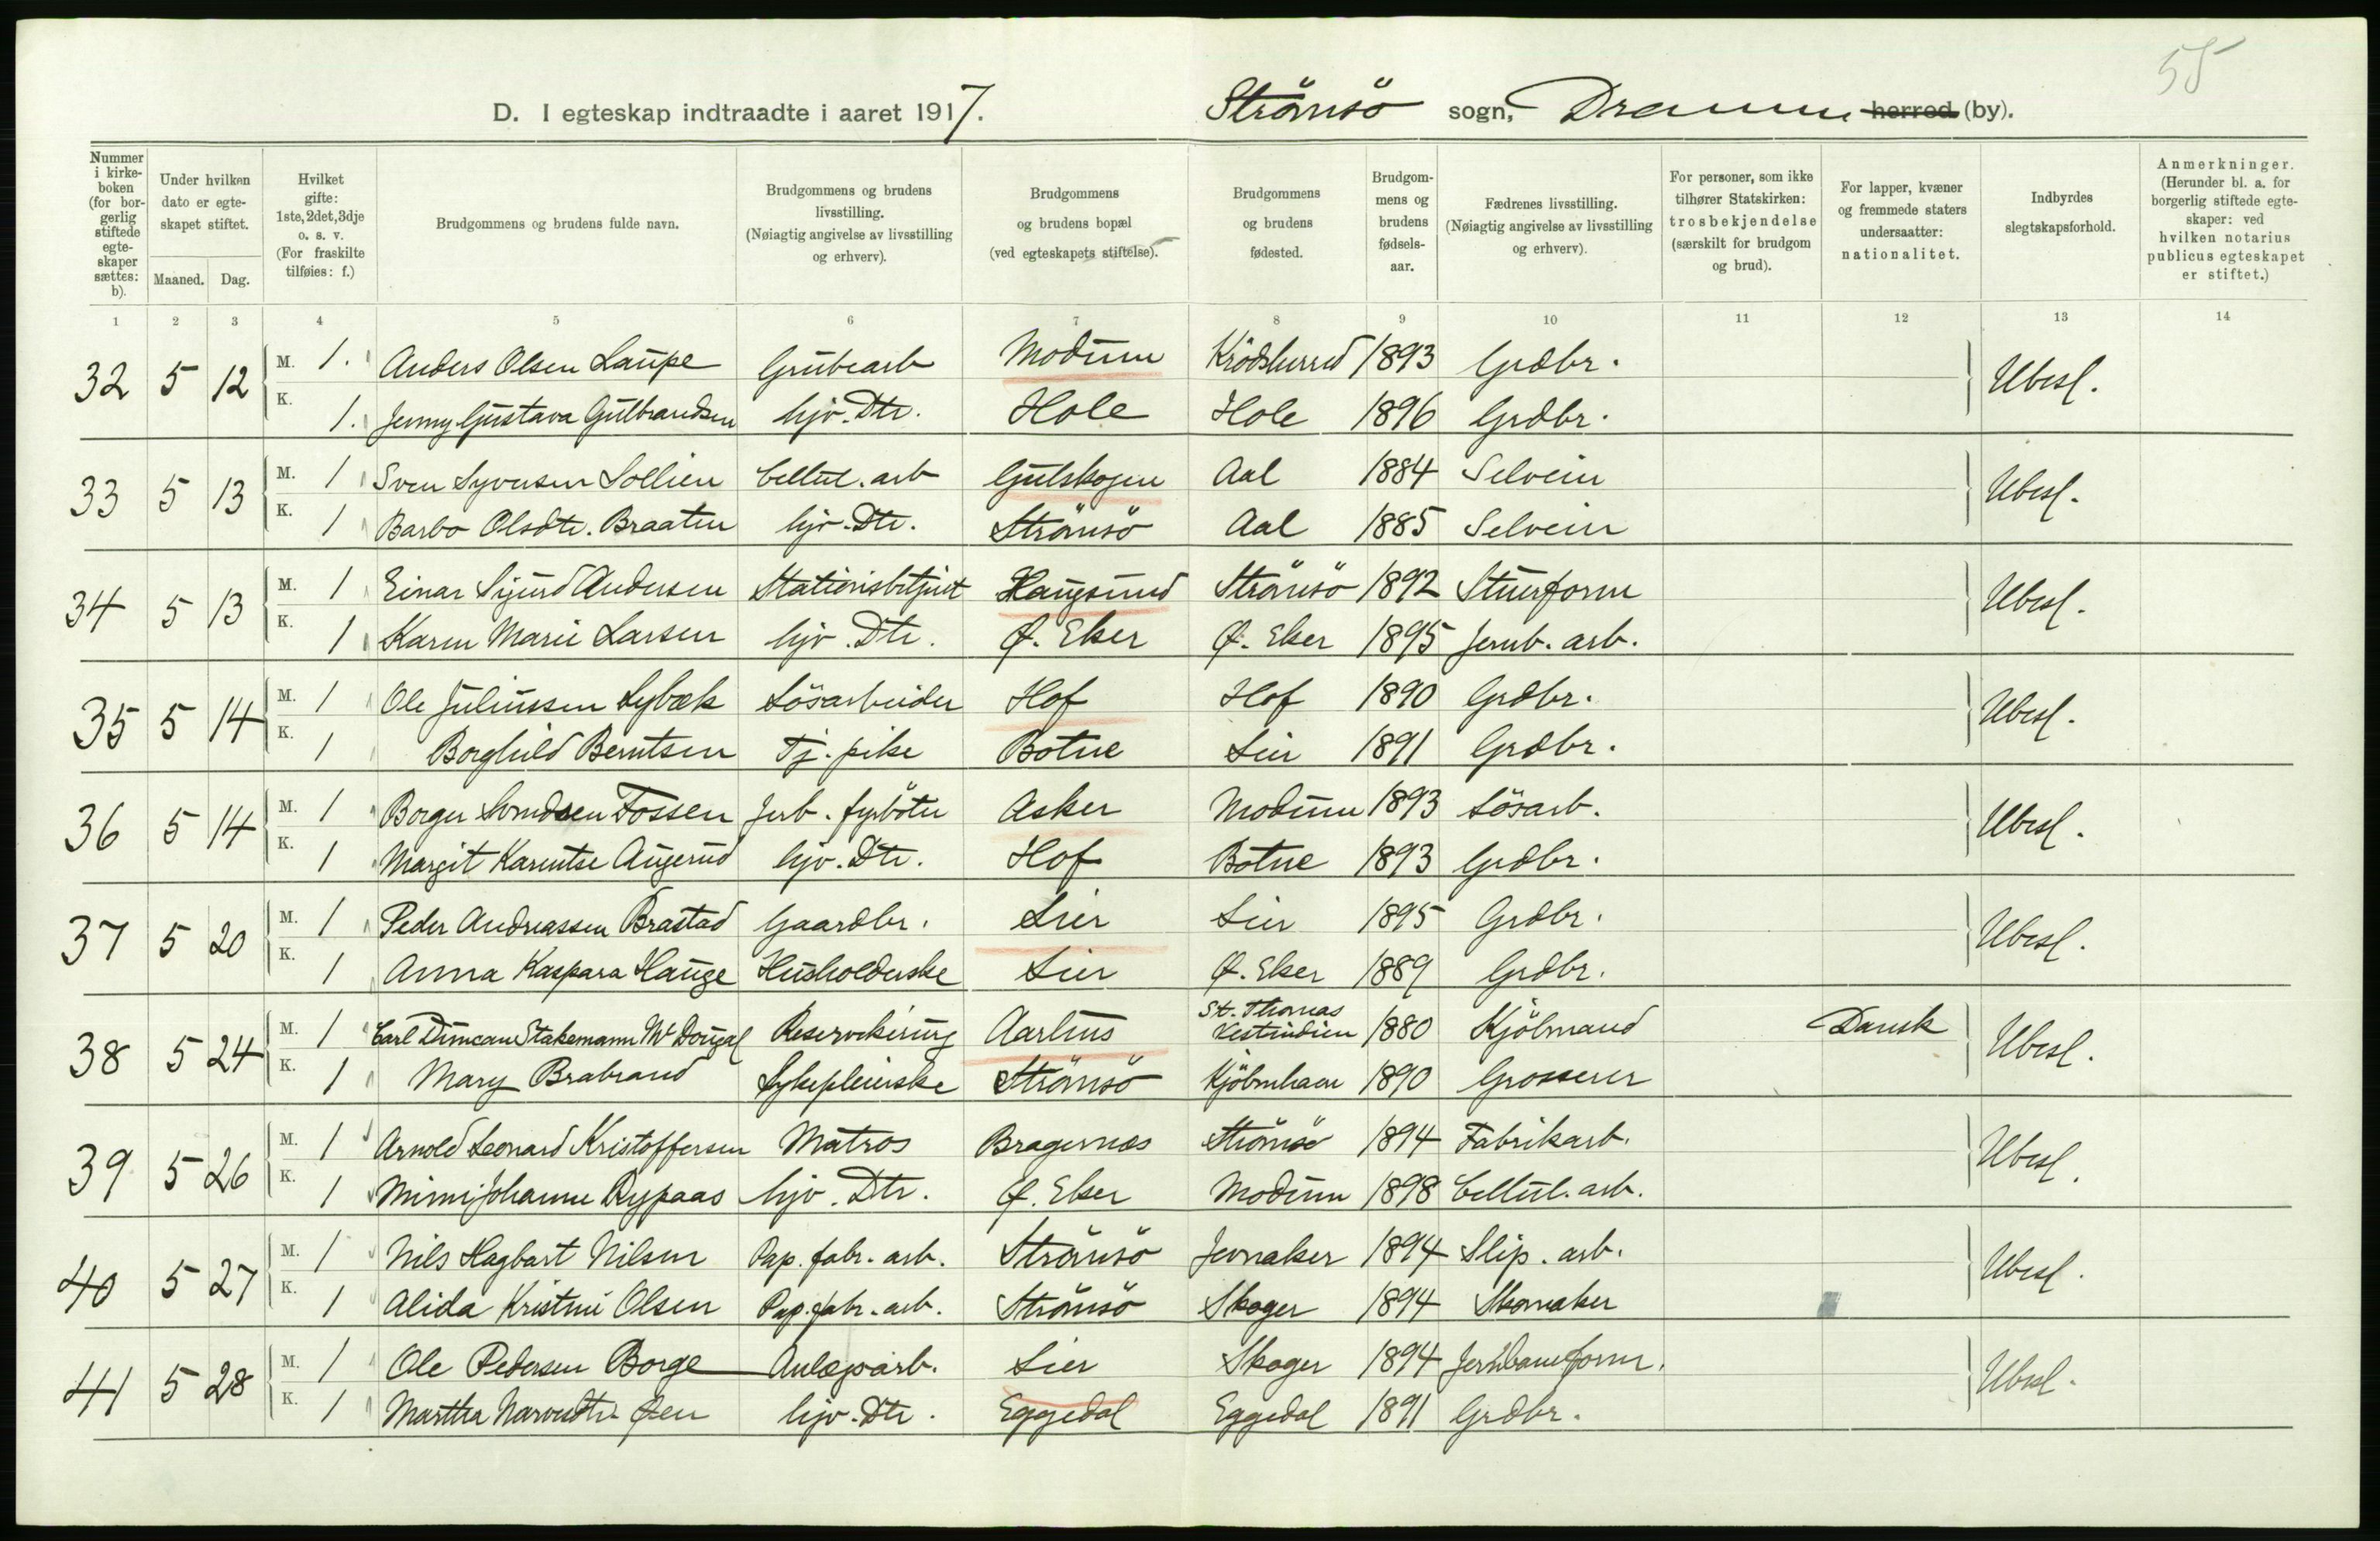 55
D. I egteskap indtraadte i aaret 1917. Strömsö sogn, Drammen herred (by).
Nummer i kirkeboken (for borgerlig stiftede egteskaper sættes: b).
Under hvilken dato er egteskapet stiftet.
Maaned. Dag.
Hvilket gifte: 1ste, 2det, 3dje o. s. v. (For fraskilte tilføies: f.)
Brudgommens og brudens fulde navn.
Brudgommens og brudens livsstilling. (Nøiagtig angivelse av livsstilling og erhverv).
Brudgommens og brudens bopæl (ved egteskapets stiftelse).
Brudgommens og brudens fødested.
Brudgommens og brudens fødselsaar.
Fædrenes livsstilling. (Nøiagtig angivelse av livsstilling og erhverv).
For personer, som ikke tilhører Statskirken: trosbekjendelse (særskilt for brudgom og brud).
For lapper, kvæner og fremmede staters undersaatter: nationalitet.
Indbyrdes slegtskapsforhold.
Anmerkninger. (Herunder bl. a. for borgerlig stiftede egteskaper: ved hvilken notarius publicus egteskapet er stiftet.)
1 2 3 4 5 6 7 8 9 10 11 12 13 14
32 5 12 M. 1. Anders Olsen Laupe Grubearb Modum Krödsherred 1893 Grdbr. Ubesl.
K. 1. Jenny Gustava Gulbrandsen hjv. Dtr. Hole Hole 1896 Grdbr.
33 5 13 M. 1 Sven Syversen Sollien Cellul. arb Gulskogen Aal 1884 Selveier Ubesl.
K. 1 Barbo Olsdtr. Braaten hjv. Dtr. Strömsö Aal 1885 Selveier
34 5 13 M. 1 Einar Sigurd Andersen Stationsbetjent Haugsund Strömsö 1892 Stuerform Ubesl.
K. 1 Karen Marie Larsen hjv. Dtr. Ø. Eker Ø. Eker 1895 Jernb. arb.
35 5 14 M. 1 Ole Juliussen Sybæk Lösarbeider Hof Hof 1890 Grdbr. Ubesl.
K. 1 Borghild Berntsen Tj. pike Botne Lier 1891 Grdbr.
36 5 14 M. 1 Borger Svendsen Fossen Jerb. fyrböter Asker Modum 1893 Lösarb. Ubesl.
K. 1 Margit Karentse Augerud hjv. Dtr. Hof Botne 1893 Grdbr.
37 5 20 M. 1 Peder Andreassen Brastad Gaardbr. Lier Lier 1895 Grdbr. Ubesl.
K. 1 Anna Kaspara Hauge Husholderske Lier Ø. Eker 1889 Grdbr.
38 5 24 M. 1 Carl Duncan Stakemann Mc Dougal Reservekirurg Aarhus St. Thomas Vestindien 1880 Kjöbmand Dansk Ubesl.
K. 1 Mary Brabrand Sykepleierske Strömsö Kjöbenhavn 1890 Grosserer
39 5 26 M. 1 Arnold Leonard Kristoffersen Matros Bragernæs Strömsö 1894 Fabrikarb. Ubesl.
K. 1 Mimi Johanne Rypaas hjv. Dtr. Ø. Eker Modum 1898 Cellul. arb.
40 5 27 M. 1 Nils Hagbart Nilsen Pap. fabr. arb. Strömsö Jevnaker 1894 Slip. arb. Ubesl.
K. 1 Alida Kristine Olsen Pap. fabr. arb. Strömsö Skoger 1894 Skomaker
41 5 28 M. 1 Ole Pedersen Borge Anlægsarb. Lier Skoger 1894 Jernbaneform. Ubesl.
K. 1 Martha Øen hjv. Dtr. Eggedal Eggedal 1891 Grdbr.